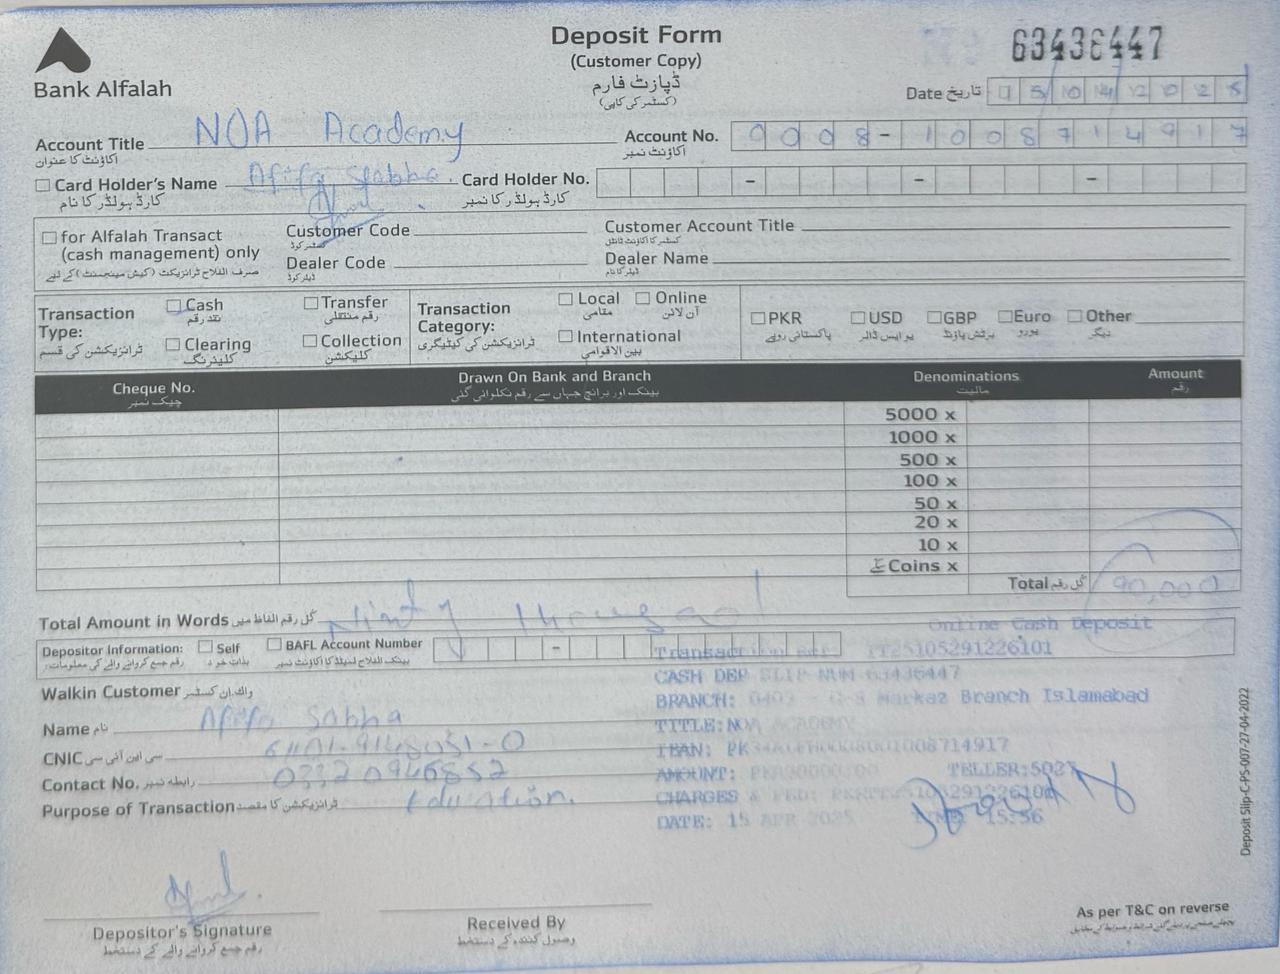 Deposit Form
(Customer Copy)
ڈپازٹ فارم
(کسٹمر کی کاپی)
63436447
Bank Alfalah
Date تاریخ
Account Title NOA Academy
اکاؤنٹ کا عنوان
Account No. 0008-1008714917
اکاؤنٹ نمبر
Card Holder's Name Afifa Sabha.
کارڈ ہولڈر کا نام
Card Holder No.
کارڈ ہولڈر کا نمبر
for Alfalah Transact
(cash management) only
صرف الفلاح ٹرانزیکٹ (کیش مینجمنٹ) کے لیے
Customer Code
کسٹمر کوڈ
Dealer Code
ڈیلر کوڈ
Customer Account Title
کسٹمر کا اکاؤنٹ ٹائٹل
Dealer Name
ڈیلر کا نام
Transaction Type:
ٹرانزیکشن کی قسم
Cash
نقد رقم
Transfer
رقم منتقلی
Clearing
کلیئرنگ
Collection
کلیکشن
Transaction Category:
ٹرانزیکشن کی کیٹیگری
Local
مقامی
Online
آن لائن
International
بین الاقوامی
PKR
پاکستانی روپے
USD
یو ایس ڈالر
GBP
برٹش پاؤنڈ
Euro
یورو
Other
دیگر
Cheque No.
چیک نمبر
Drawn On Bank and Branch
بینک اور برانچ جہاں سے رقم نکلوائی گئی
Denominations
مالیت
Amount
رقم
5000 x
1000 x
500 x
100 x
50 x
20 x
10 x
Coins x سکے
Total کل رقم 90,000
Total Amount in Words کل رقم الفاظ میں Ninty thousand
Depositor Information:
رقم جمع کروانے والے کی معلومات:
Self
بذات خود
BAFL Account Number
بینک الفلاح لمیٹڈ کا اکاؤنٹ نمبر
Online Cash Deposit
CASH DEP SLIP NUM 63436447
BRANCH: 0402 - G-8 Markaz Branch Islamabad
TITLE: NOA ACADEMY
IBAN:
AMOUNT:
TELLER:5027
CHARGES & FED:
DATE: 15 APR 2025
15:56
Walkin Customer واک ان کسٹمر
Name نام Afifa Sabha
CNIC سی این آئی سی
Contact No. رابطہ نمبر 03320946852
Purpose of Transaction ٹرانزیکشن کا مقصد Education.
Depositor's Signature
رقم جمع کروانے والے کے دستخط
Received By
وصول کنندہ کے دستخط
As per T&C on reverse
Deposit Slip-C-PS-007-27-04-2022